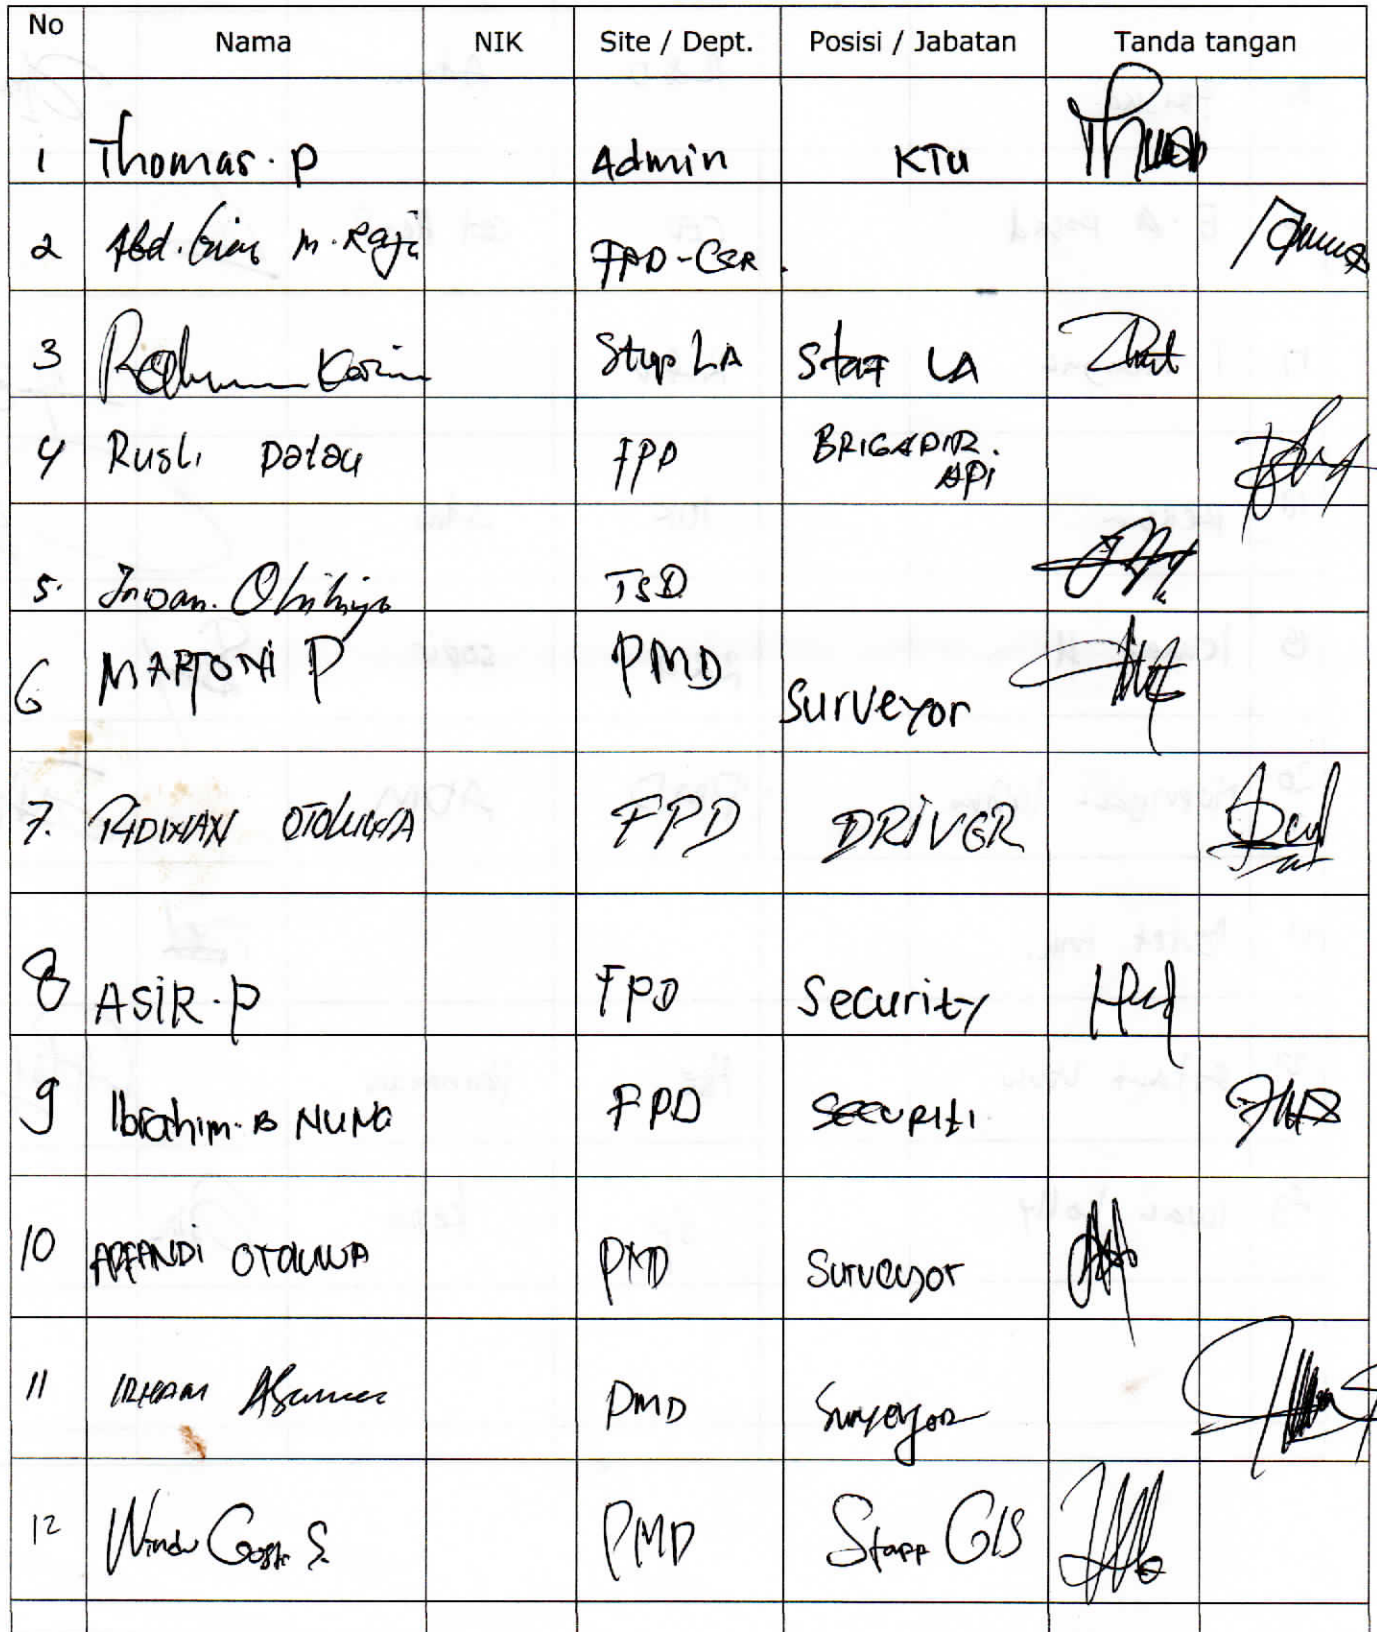 No Nama NIK Site / Dept. Posisi / Jabatan Tanda tangan
1 Thomas. P Admin KTU
2 Abd. M. Raja FPD-CSR.
3 Karim LA Staf LA
4 Rusli Datau FPD BRIGADIR.
API
5. TSD
6 MARTONI P PMD Surveyor
7. RIDWAN OTOLUWA FPD DRIVER
8 ASIR. P FPD Security
9 Ibrahim. B NUNA FPD SECURITI.
10 AFFANDI OTOLUWA PMD Surveyor
11 IRHAM PMD Surveyor
12 Windu S. PMD Stapp GIS